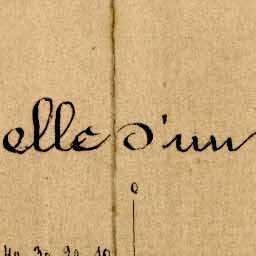 elle d'un
0
40 30 20 10